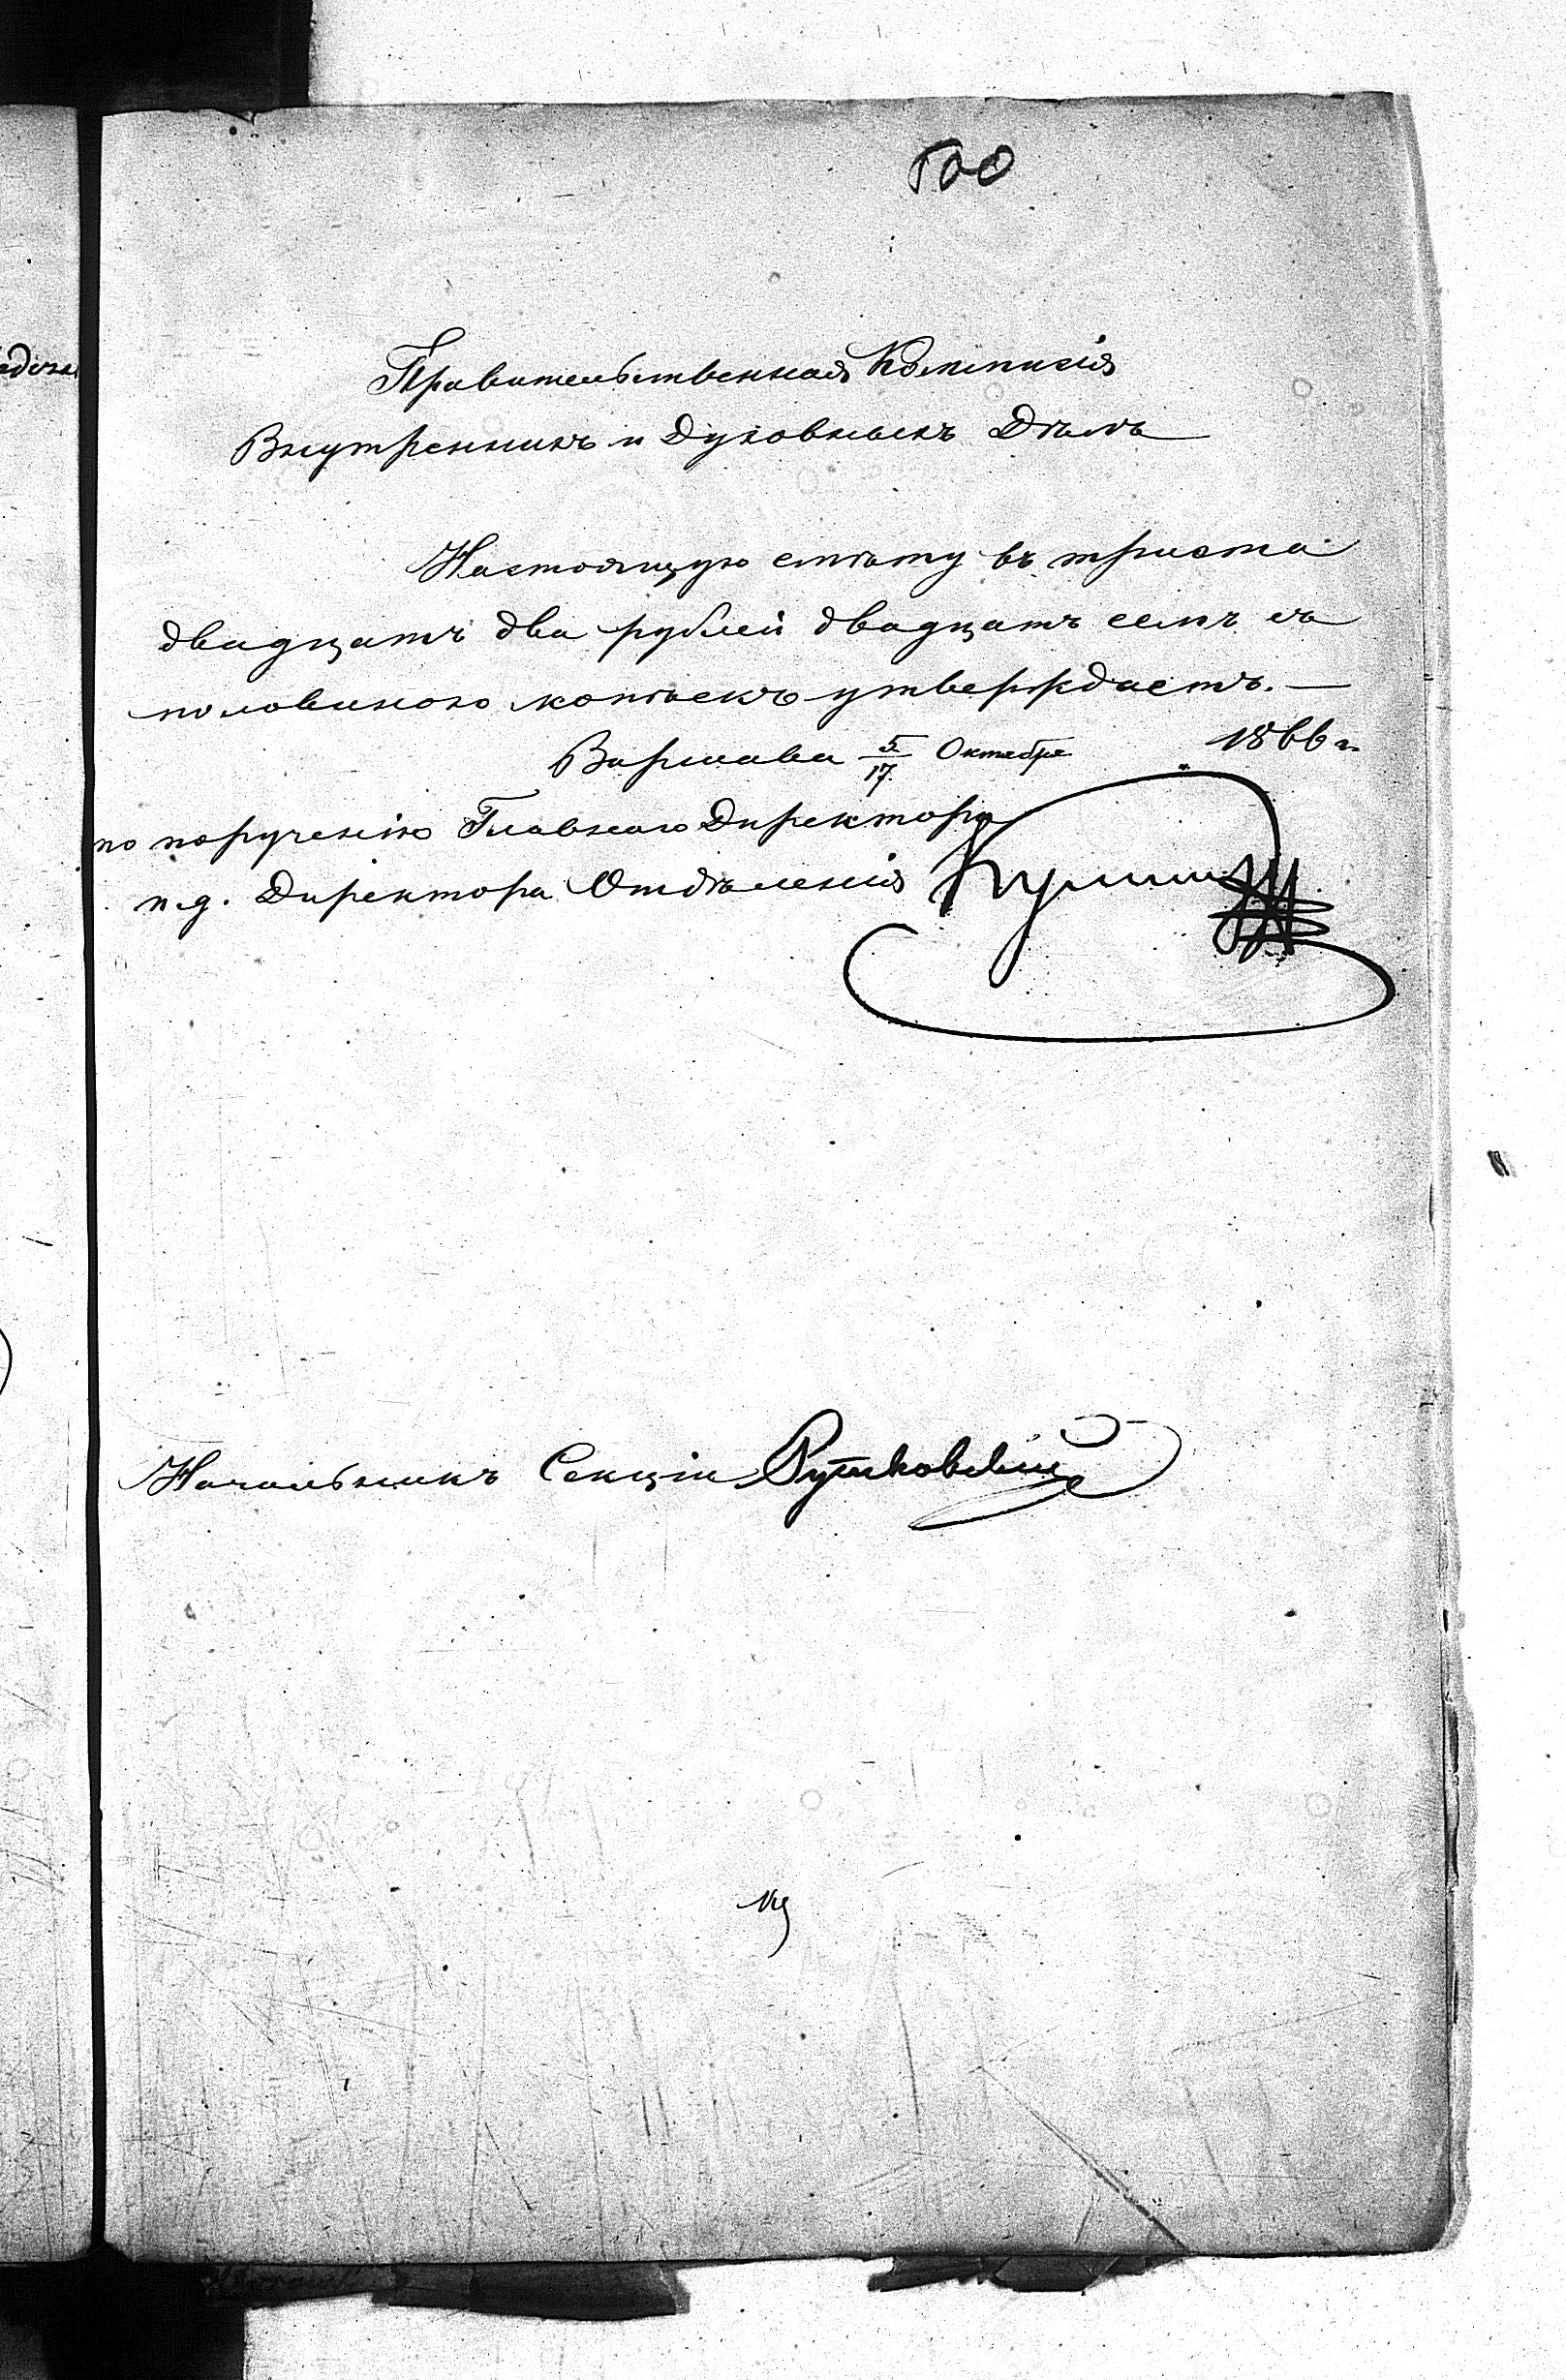 500
Правительственная Коммисія
Внутреннихъ и Духовныхъ Дѣлъ
Настоящую смѣту въ триста
двадцать два рублей двадцать семь съ
половиною копѣекъ утверждаетъ. —
Варшава 5/17 Октября 1866 г.
по порученію Главнаго Директора
и.д. Директора Отдѣленія
Начальникъ Секціи Рутковскій